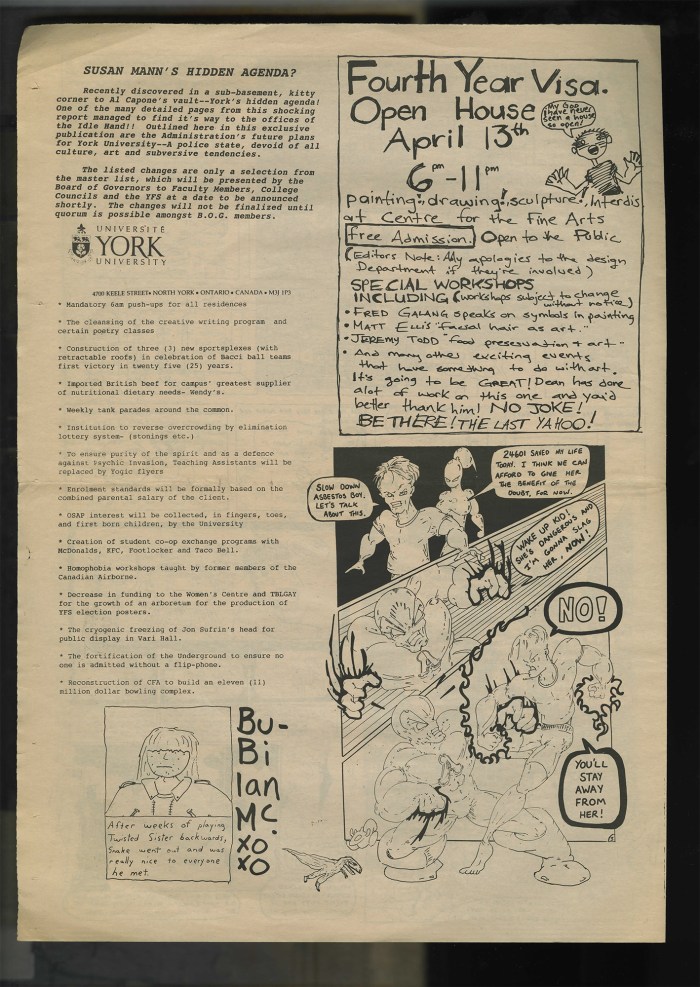 SUSAN MANN'S HIDDEN AGENDA?
Recently discovered in a sub-basement, kitty
corner to Al Capone's vault--York's hidden agenda!
One of the many detailed pages from this shocking
report managed to find it's way to the offices of
the Idle Hand!! Outlined here in this exclusive
publication are the Administration's future plans
for York University--A police state, devoid of all
culture, art and subversive tendencies.
The listed changes are only a selection from
the master list, which will be presented by the
Board of Governors to Faculty Members, College
Councils and the YFS at a date to be announced
shortly. The changes will not be finalized until
quorum is possible amongst B.O.G. members.
UNIVERSITÉ
YORK
UNIVERSITY
4700 KEELE STREET• NORTH YORK • ONTARIO • CANADA • M3J 1P3
* Mandatory 6am push-ups for all residences
* The cleansing of the creative writing program and
certain poetry classes
* Construction of three (3) new sportsplexes (with
retractable roofs) in celebration of Bacci ball teams
first victory in twenty five (25) years.
* Imported British beef for campus' greatest supplier
of nutritional dietary needs- Wendy's.
* Weekly tank parades around the common.
* Institution to reverse overcrowding by elimination
lottery system- (stonings etc.)
* To ensure purity of the spirit and as a defence
against Psychic Invasion, Teaching Assistants will be
replaced by Yogic flyers
* Enrolment standards will be formally based on the
combined parental salary of the client.
* OSAP interest will be collected, in fingers, toes,
and first born children, by the University
* Creation of student co-op exchange programs with
McDonalds, KFC, Footlocker and Taco Bell.
* Homophobia workshops taught by former members of the
Canadian Airborne.
* Decrease in funding to the Women's Centre and TBLGAY
for the growth of an arboretum for the production of
YFS election posters.
* The cryogenic freezing of Jon Sufrin's head for
public display in Vari Hall.
* The fortification of the Underground to ensure no
one is admitted without a flip-phone.
* Reconstruction of CFA to build an eleven (11)
million dollar bowling complex.
After weeks of playing
Twisted Sister backwards,
Snake went out and was
really nice to everyone
he met.
Bu-
Bi
Ian
Mc.
XO
XO
Fourth Year Visa.
Open House
April 13th
6pm-11pm
My God
I have never
seen a house
so open!
painting, drawing, sculpture, Interdis
at Centre for the Fine Arts
Free Admission. Open to the Public
(Editors Note: My apologies to the design
Department if they're involved)
SPECIAL WORKSHOPS
INCLUDING (workshops subject to change
without notice)
• FRED GALANG speaks on symbols in painting
• MATT Ellis "facial hair as art."
• JEREMY TODD "food preservation + art"
• And many other exciting events
that have something to do with art.
It's going to be GREAT! Dean has done
alot of work on this one and you'd
better thank him! NO JOKE!
BE THERE! THE LAST YAHOO!
SLOW DOWN
ASBESTOS BOY.
LET'S TALK
ABOUT THIS.
24601 SAVED MY LIFE
TODAY. I THINK WE CAN
AFFORD TO GIVE HER
THE BENEFIT OF THE
DOUBT, FOR NOW.
WAKE UP KID!
SHE'S DANGEROUS AND
I'M GONNA SLAG
HER, NOW!
NO!
YOU'LL
STAY
AWAY
FROM
HER!